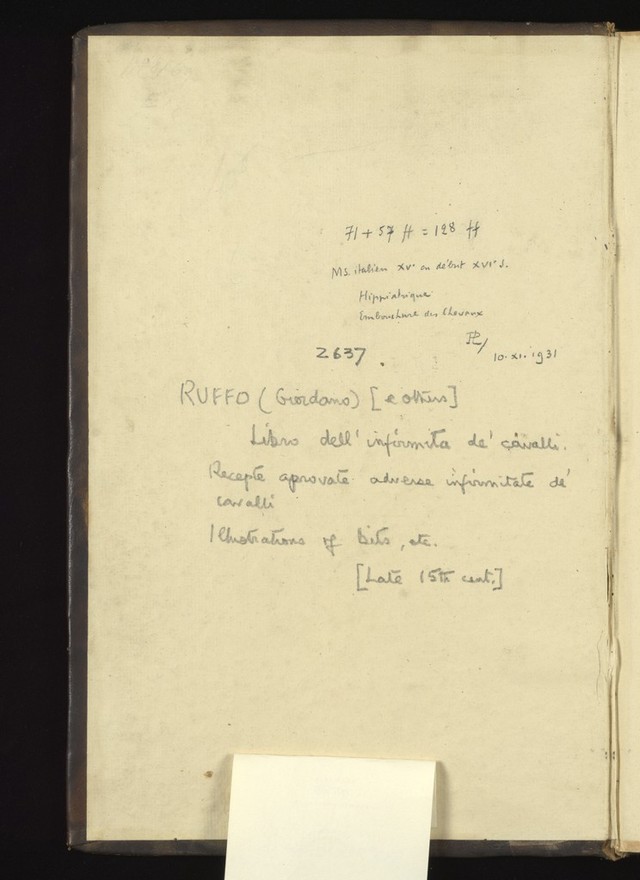 71 + 57 ff = 128 ff
MS. italien XVe ou début XVIe s.
Hippiatrique
Embouchure des Chevaux
10.XI.1931
2637.
RUFFO (Giordano) [e others]
Libro dell' infirmita de' cavalli.
Recepte aprovate adverse infirmitate de'
cavalli
Illustrations of bits, etc.
[Late 15th cent.]